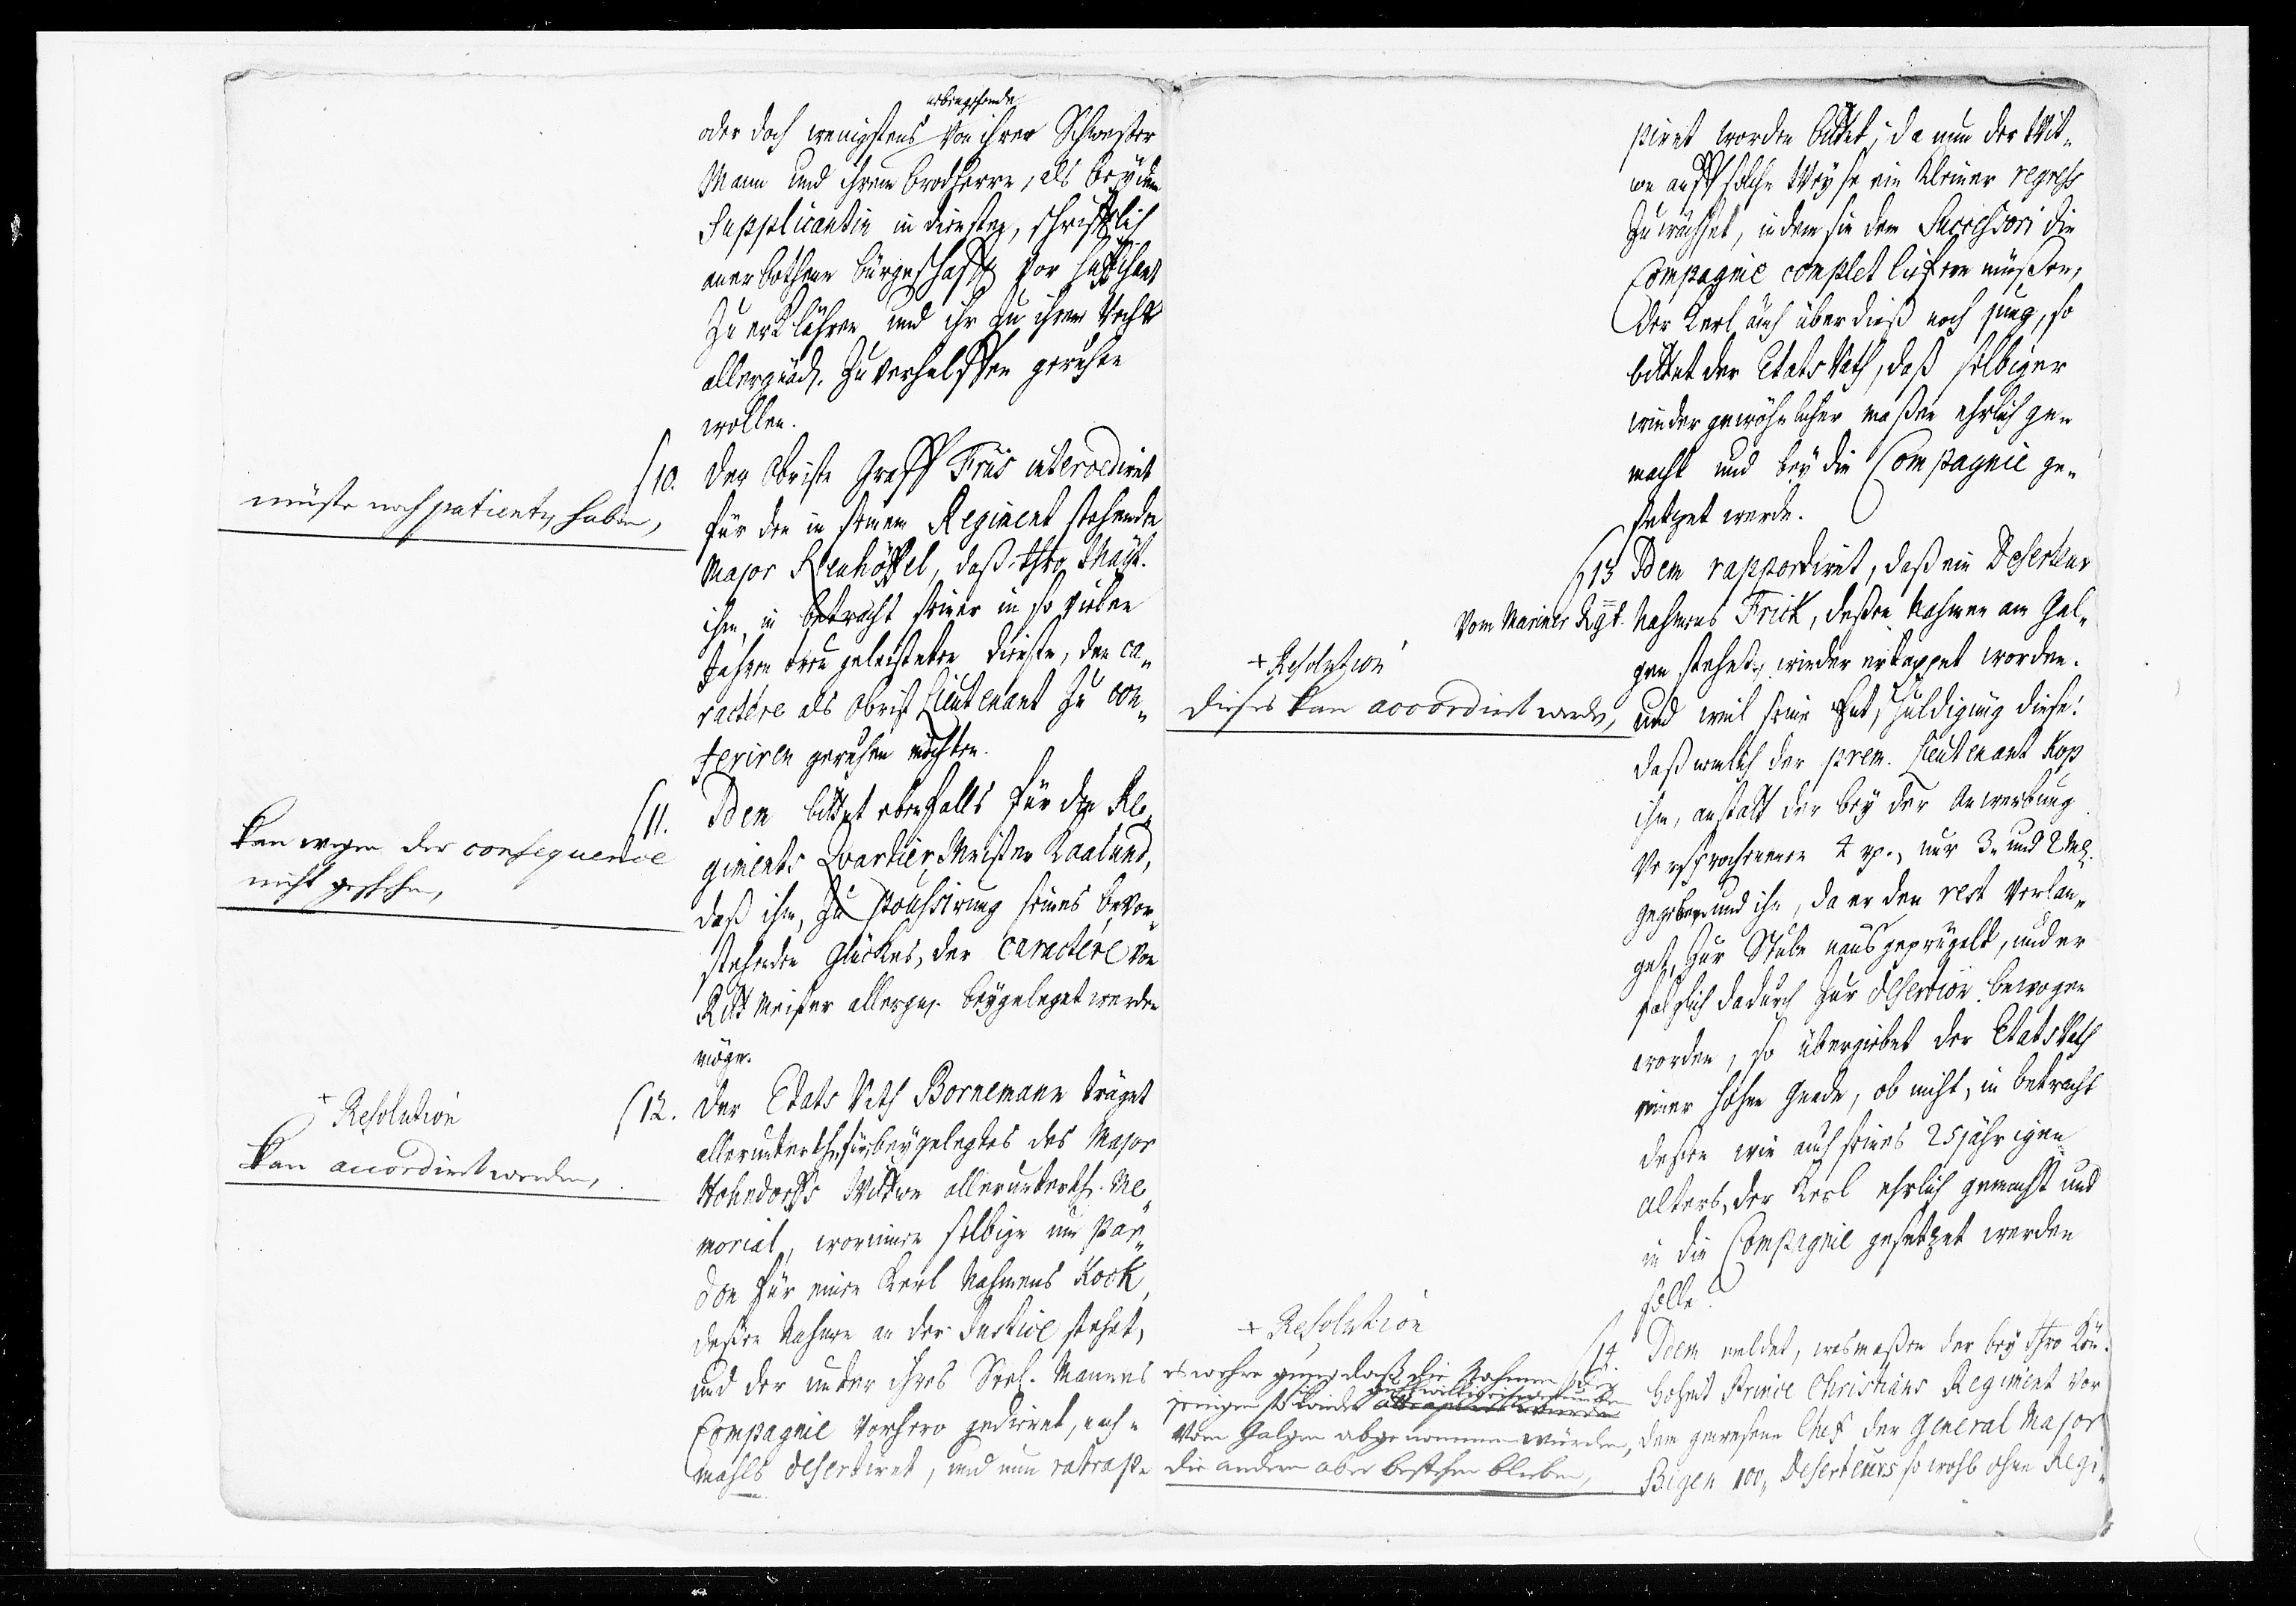 nebengehende
oder doch wenigstens von ihrer Schwester
Mann und ihrem Brodherrn, als beÿ dem
Supplicantin in diensten, schrifftlich
anerbothene Bürgschafft vor sufficient
zu erklähren und ihr zu ihrem Rechte
allergnäd. zu verhelffen geruhen
wollen.
müste noch patientz haben,
10. der Obriste Graff Friis intercediret
für den in seinem Regiment stehenden
Major Lenhöffel, daß Ihro Maÿt.
ihm, in betracht seiner in so vielen
Jahren treu geleisteten dienste, den ca„
ractére als Obrist Lieutenant zu con„
feriren geruhen möchten.
Kan wegen der consequence
nicht geschehn,
11. Idem bittet ebenfalls für den Re„
giments Quartier Meister Kaalund,
daß ihm, zu poussirung seines bevor„
stehenden Glückes, der caractére von
Ritt Meister allergn. beÿgeleget werden
möge.
+ Resolution
Kan accordiret werden,
12. der Etats Rath Bornemann träget
allerunterth. für beÿgelegtes des Major
Hohndorffs Wittwe allerunterth. Me„
morial, worinnen selbige um Par„
don für einen Kerl Nahmens Kock,
deßen Nahme an der Justice stehet,
und der unter ihres Seel. Mannes
Compagnie vorhero gedienet, nach„
mahls desertiret, und nun ratrap„
piret worden bittet; da nun der Wit„
we auff solche Weÿse ein kleiner regress
zuwächset, indem sie dem Successori die
Compagnie complet liefern müßen,
der Kerl auch überdieß noch jung, so
bittet der Etats Rath, daß selbiger
wieder gewöhnlicher maßen ehrlich ge„
macht und beÿ die Compagnie ge„
setzet werde.
13 Idem rapportiret, daß ein Deserteur
vom Marinier Rgt. Nahmens Frick, deßen Nahmen am Gal„
gen stehet, wieder ertappet worden.
+ Resolution
dieses kan accordiret werden,
und weil seine Entschuldigung diese:
daß nemlich der prem. Lieutenant Kop
ihm, anstatt der beÿ der Anwerbung
versprochenen 4 rp., nur 3. und 2 Mk.
gegeben und ihn, da er den rest verlan„
get, zur Stube naus geprügelt, und er
folglich dadurch zur desertion bewogen
worden, so übergiebet der Etats Rath
einer hohen Gnade, ob nicht, in betracht
deßen wie auch seines 25 jährigen
Alters, der Kerl ehrlich gemacht und
in die Compagnie gesetzet werden
solle?
+ Resolution
es wehre genug daß die Nahmen der
jenigen so wieder
vom Galgen abgenommen würden,
die andern aber bestehen blieben,
14. Idem meldet, wasmaßen der beÿ Ihro Kön.
Hoheit Prince Christians Regiment vor
dem gewesene Chef der General Major
Bigen 100, Deserteurs so wohl ohne Regi„